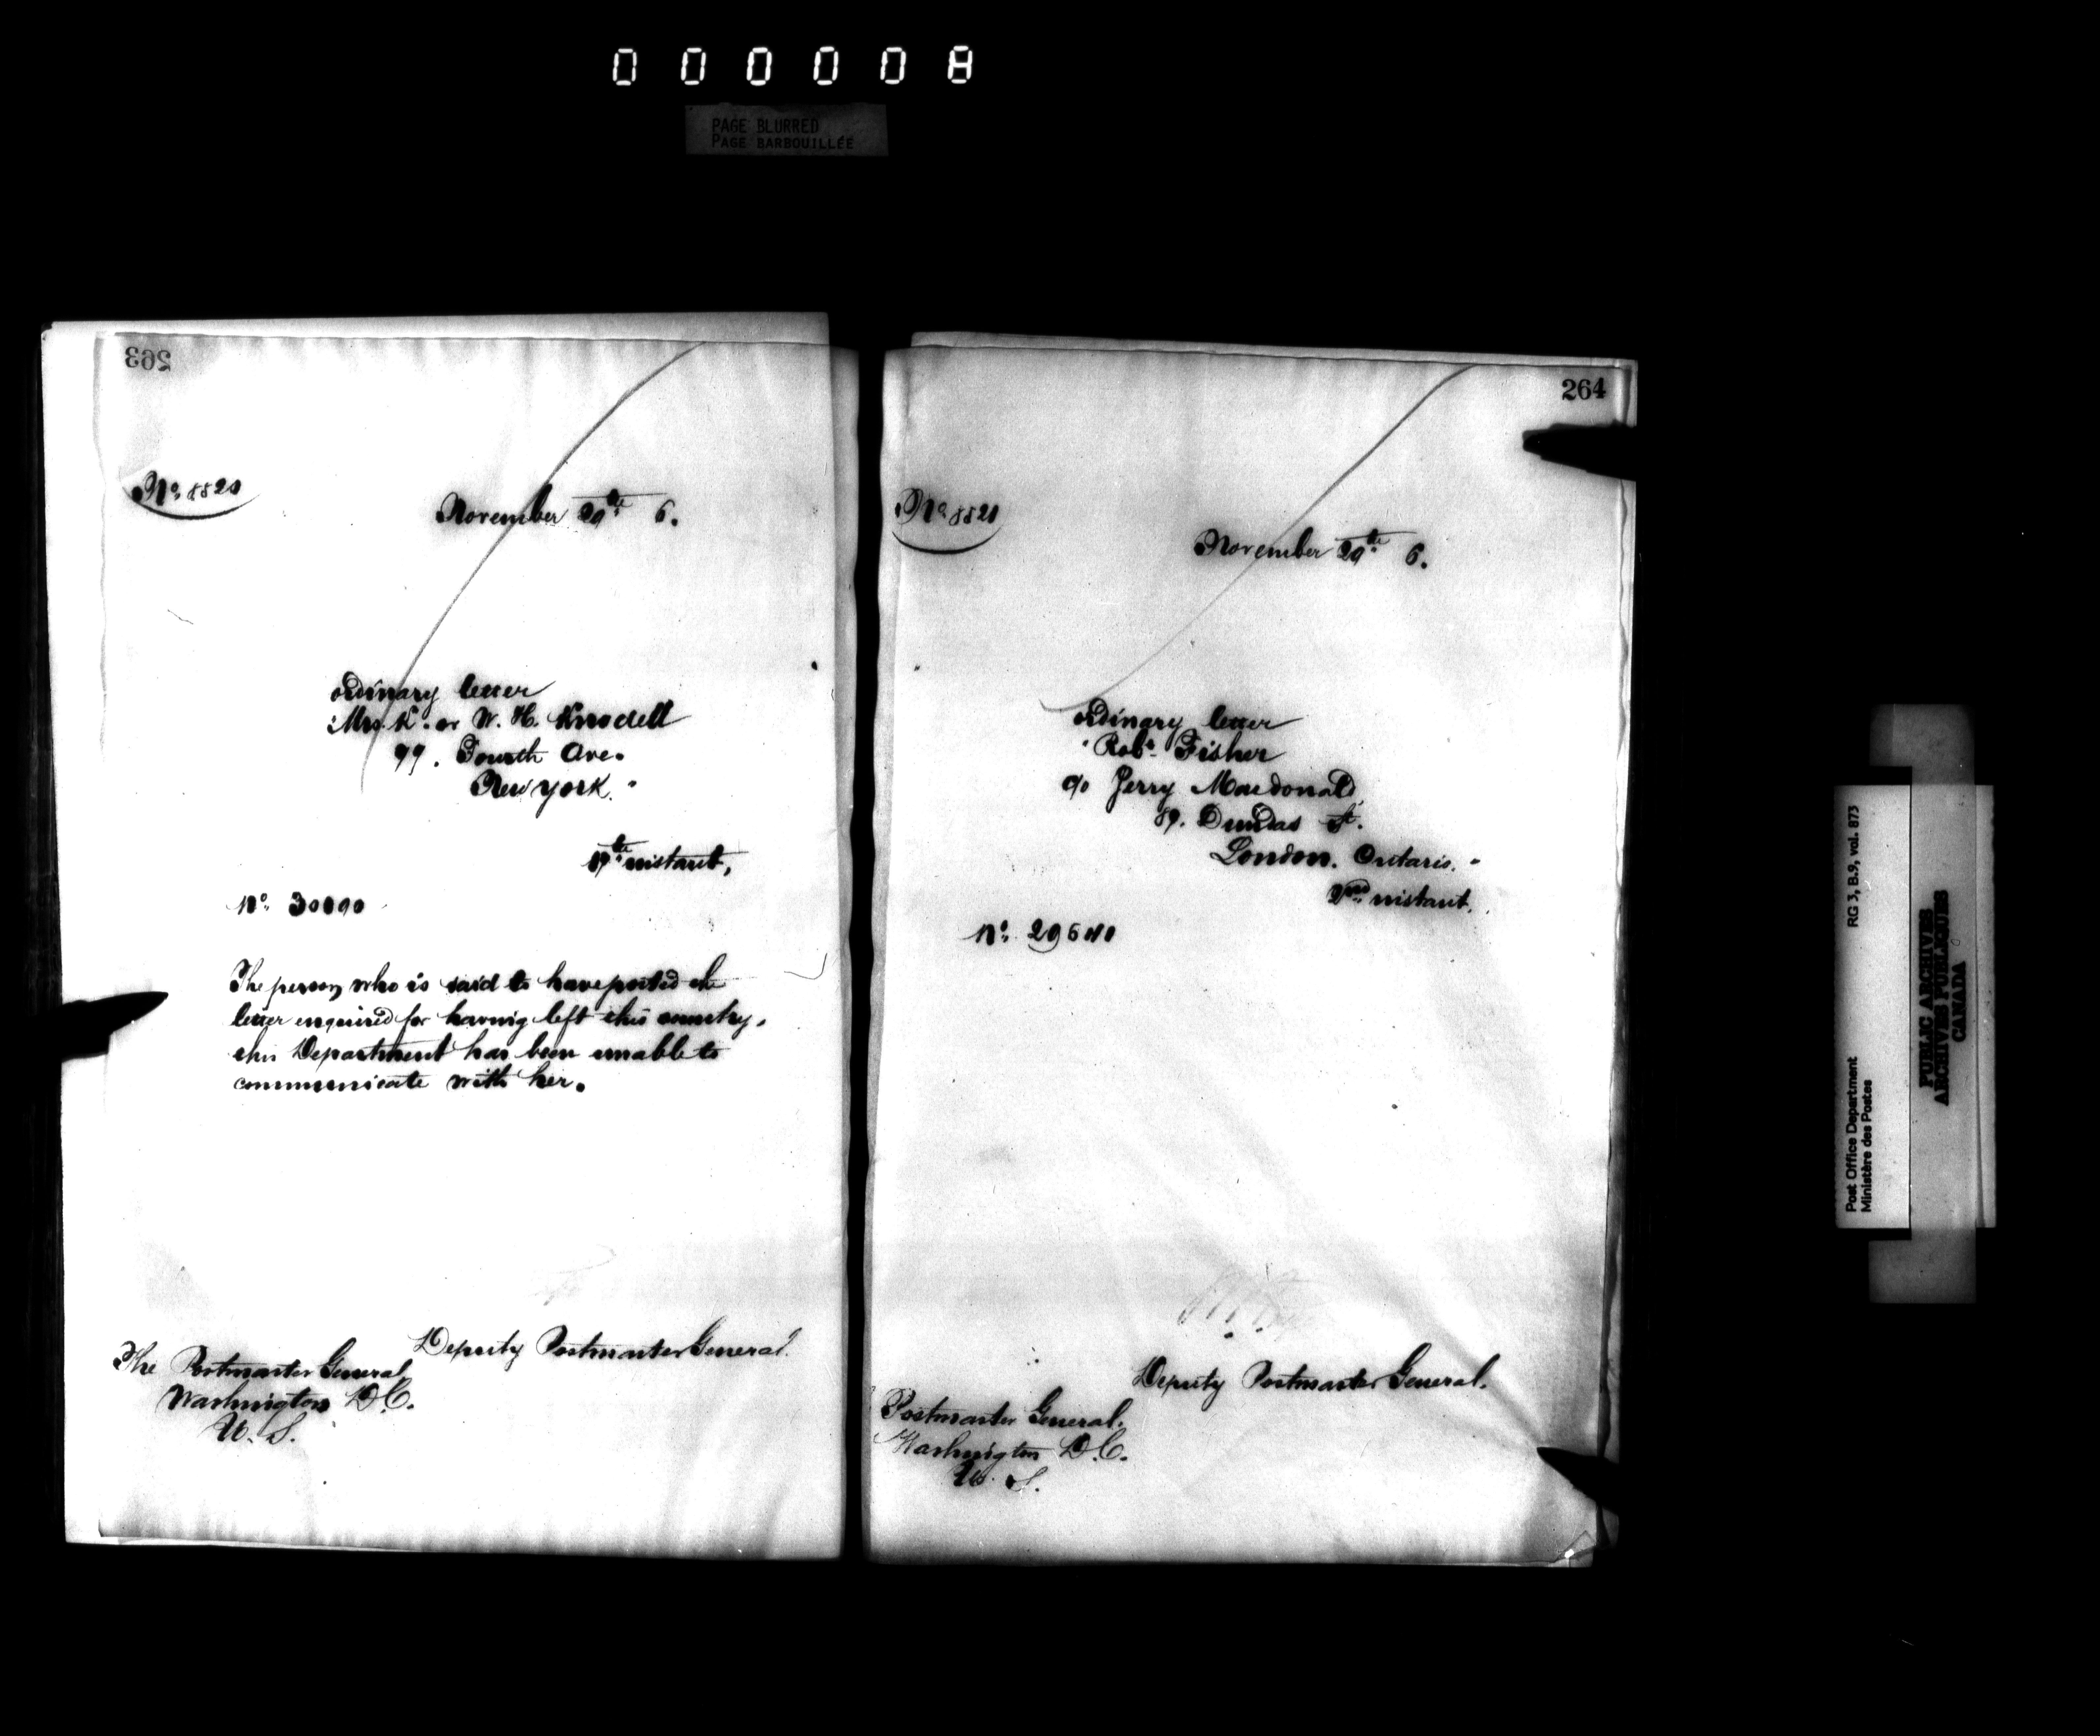 000008
PAGE BLURRED
PAGE BARBOUILLÉE
263
No. 8820
November 29th 6.
ordinary letter
Mrs. K. or W. H. Knodell
99. Fourth Ave.
New York. "
17th instant,
No. 30090
The person who is said to have posted the
letter enquired for having left this country,
this Department has been unable to
communicate with her.
Deputy Postmaster General.
The Postmaster General
Washington D.C.
U. S.
264
No. 8821
November 29th 6.
ordinary letter
"Robt. Fisher
c/o Jerry Macdonald,
89. Dundas St.
London. Ontario. "
2nd instant,
No.
Deputy Postmaster General.
Postmaster General.
Washington D.C.
U. S.
Post Office Department
Ministère des Postes
RG 3, B.9, vol. 873
PUBLIC ARCHIVES
ARCHIVES PUBLIQUES
CANADA